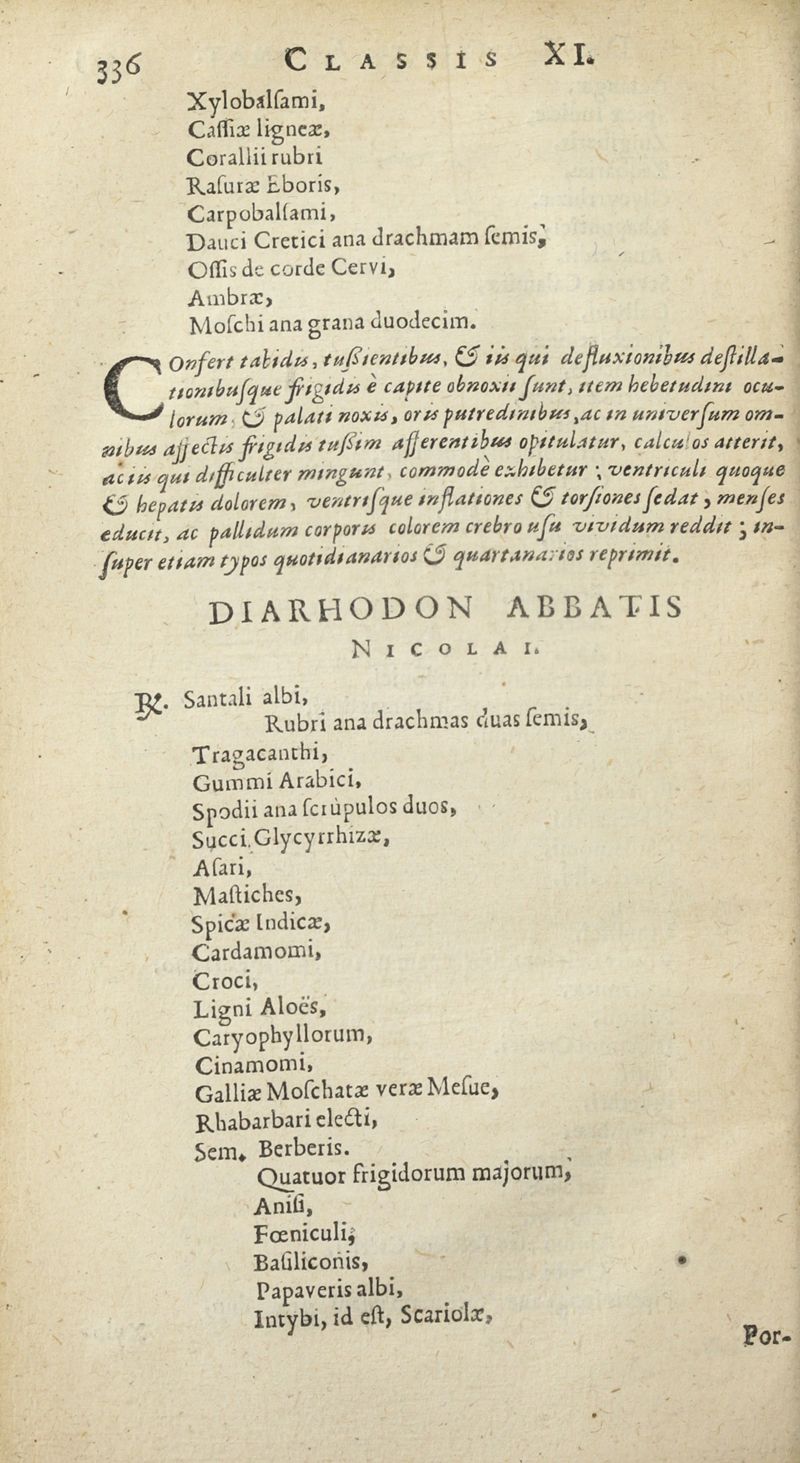 336 CLASSIS XI.
Xylobalſami,
Caſſiæ ligneæ,
Corallii rubri
Raſuræ Eboris,
Carpobalſami,
Dauci Cretici ana drachmam ſemis,
Oſſis de corde Cervi,
Ambræ,
Moſchi ana grana duodecim.
COnfert tabidis, tußientibus, & iis qui defluxionibus deſtilla-
tionibuſque frigidis è capite obnoxii ſunt, item hebetudini ocu-
lorum, & palati noxis, oris putredinibus, ac in univerſum om-
nibus affectis frigidis tußim afferentibus opitulatur, calculos atterit,
ac iis qui difficulter mingunt, commodè exhibetur; ventriculi quoque
& hepatis dolorem, ventriſque inflationes & torſiones ſedat, menſes
educit, ac pallidum corporis colorem crebro uſu vividum reddit; in-
ſuper etiam typos quotidianarios & quartanarios reprimit.
DIARHODON ABBATIS
NICOLAI.
℞. Santali albi,
Rubri ana drachmas duas ſemis,
Tragacanthi,
Gummi Arabici,
Spodii ana ſcrùpulos duos,
Succi Glycyrrhizæ,
Aſari,
Maſtiches,
Spicæ Indicæ,
Cardamomi,
Croci,
Ligni Aloës,
Caryophyllorum,
Cinamomi,
Galliæ Moſchatæ veræ Meſue,
Rhabarbari electi,
Sem. Berberis.
Quatuor frigidorum majorum,
Aniſi,
Fœniculi,
Baſiliconis,
Papaveris albi,
Intybi, id eſt, Scariolæ,
Por-